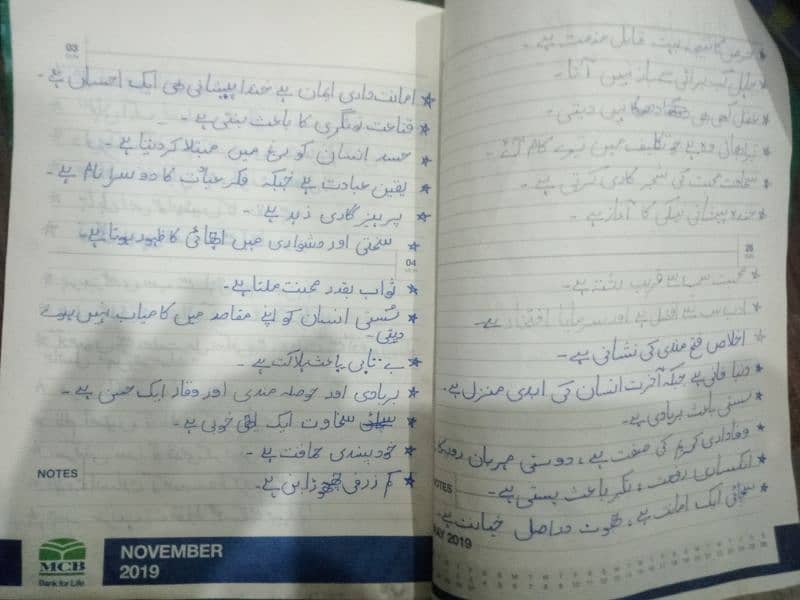 03
SUN
امانت داری ایمان ہے خندا پیشانی بھی ایک احسان ہے۔
قناعت تونگری کا باعث بنتی ہے۔
حسد انسان کو رنج میں مبتلا کر دیتا ہے۔
یقین عبادت ہے جبکہ فکر عبادت کا دوسرا نام ہے۔
پرہیز گاری زہد ہے۔
سختی اور دشواری میں اچھائی کا ظہور ہوتا ہے۔
04
MON
ثواب بقدر محنت ملتا ہے۔
سُستی انسان کو اپنے مقاصد میں کامیاب نہیں ہونے
دیتی۔
بے تابی باعث ہلاکت ہے۔
بربادی اور حوصلہ مندی اور وقار ایک حسن ہے۔
سخاوت ایک اچھی خوبی ہے۔
خود پسندی حماقت ہے۔
کم ظرفی ہے۔
NOTES
MCB
Bank for Life
NOVEMBER
2019
کا نتیجہ بہت قابل مذمت ہے۔
برائی سے باز نہیں آتا۔
عقل کبھی بھی نہیں دیتی۔
وہ ہے جو تکلیف میں تیرے کام آئے۔
سخاوت محبت کی شجر کاری کرتی ہے۔
خندہ پیشانی نیکی کا آغاز ہے۔
26
SUN
محبت سب سے قریب رشتہ ہے۔
ادب سب سے افضل ہے اور سرمایا افتخار ہے۔
اخلاص فتح مندی کی نشانی ہے۔
دنیا فانی ہے جبکہ آخرت انسان کی ابدی منزل ہے۔
سستی باعث بربادی ہے۔
وفاداری کریم کی صفت ہے، دوستی مہربان
انکساری رفعت، تکبر باعث پستی ہے۔
سچائی ایک امانت ہے، جھوٹ دراصل خیانت ہے۔
NOTES
MAY 2019